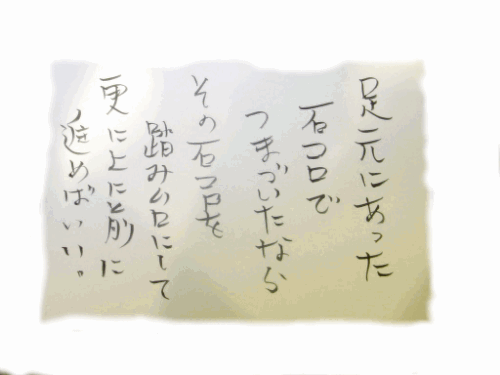 足元にあった
石コロで
つまづいたなら
その石コロを
踏み台にして
更に上に前に
進めばいい。